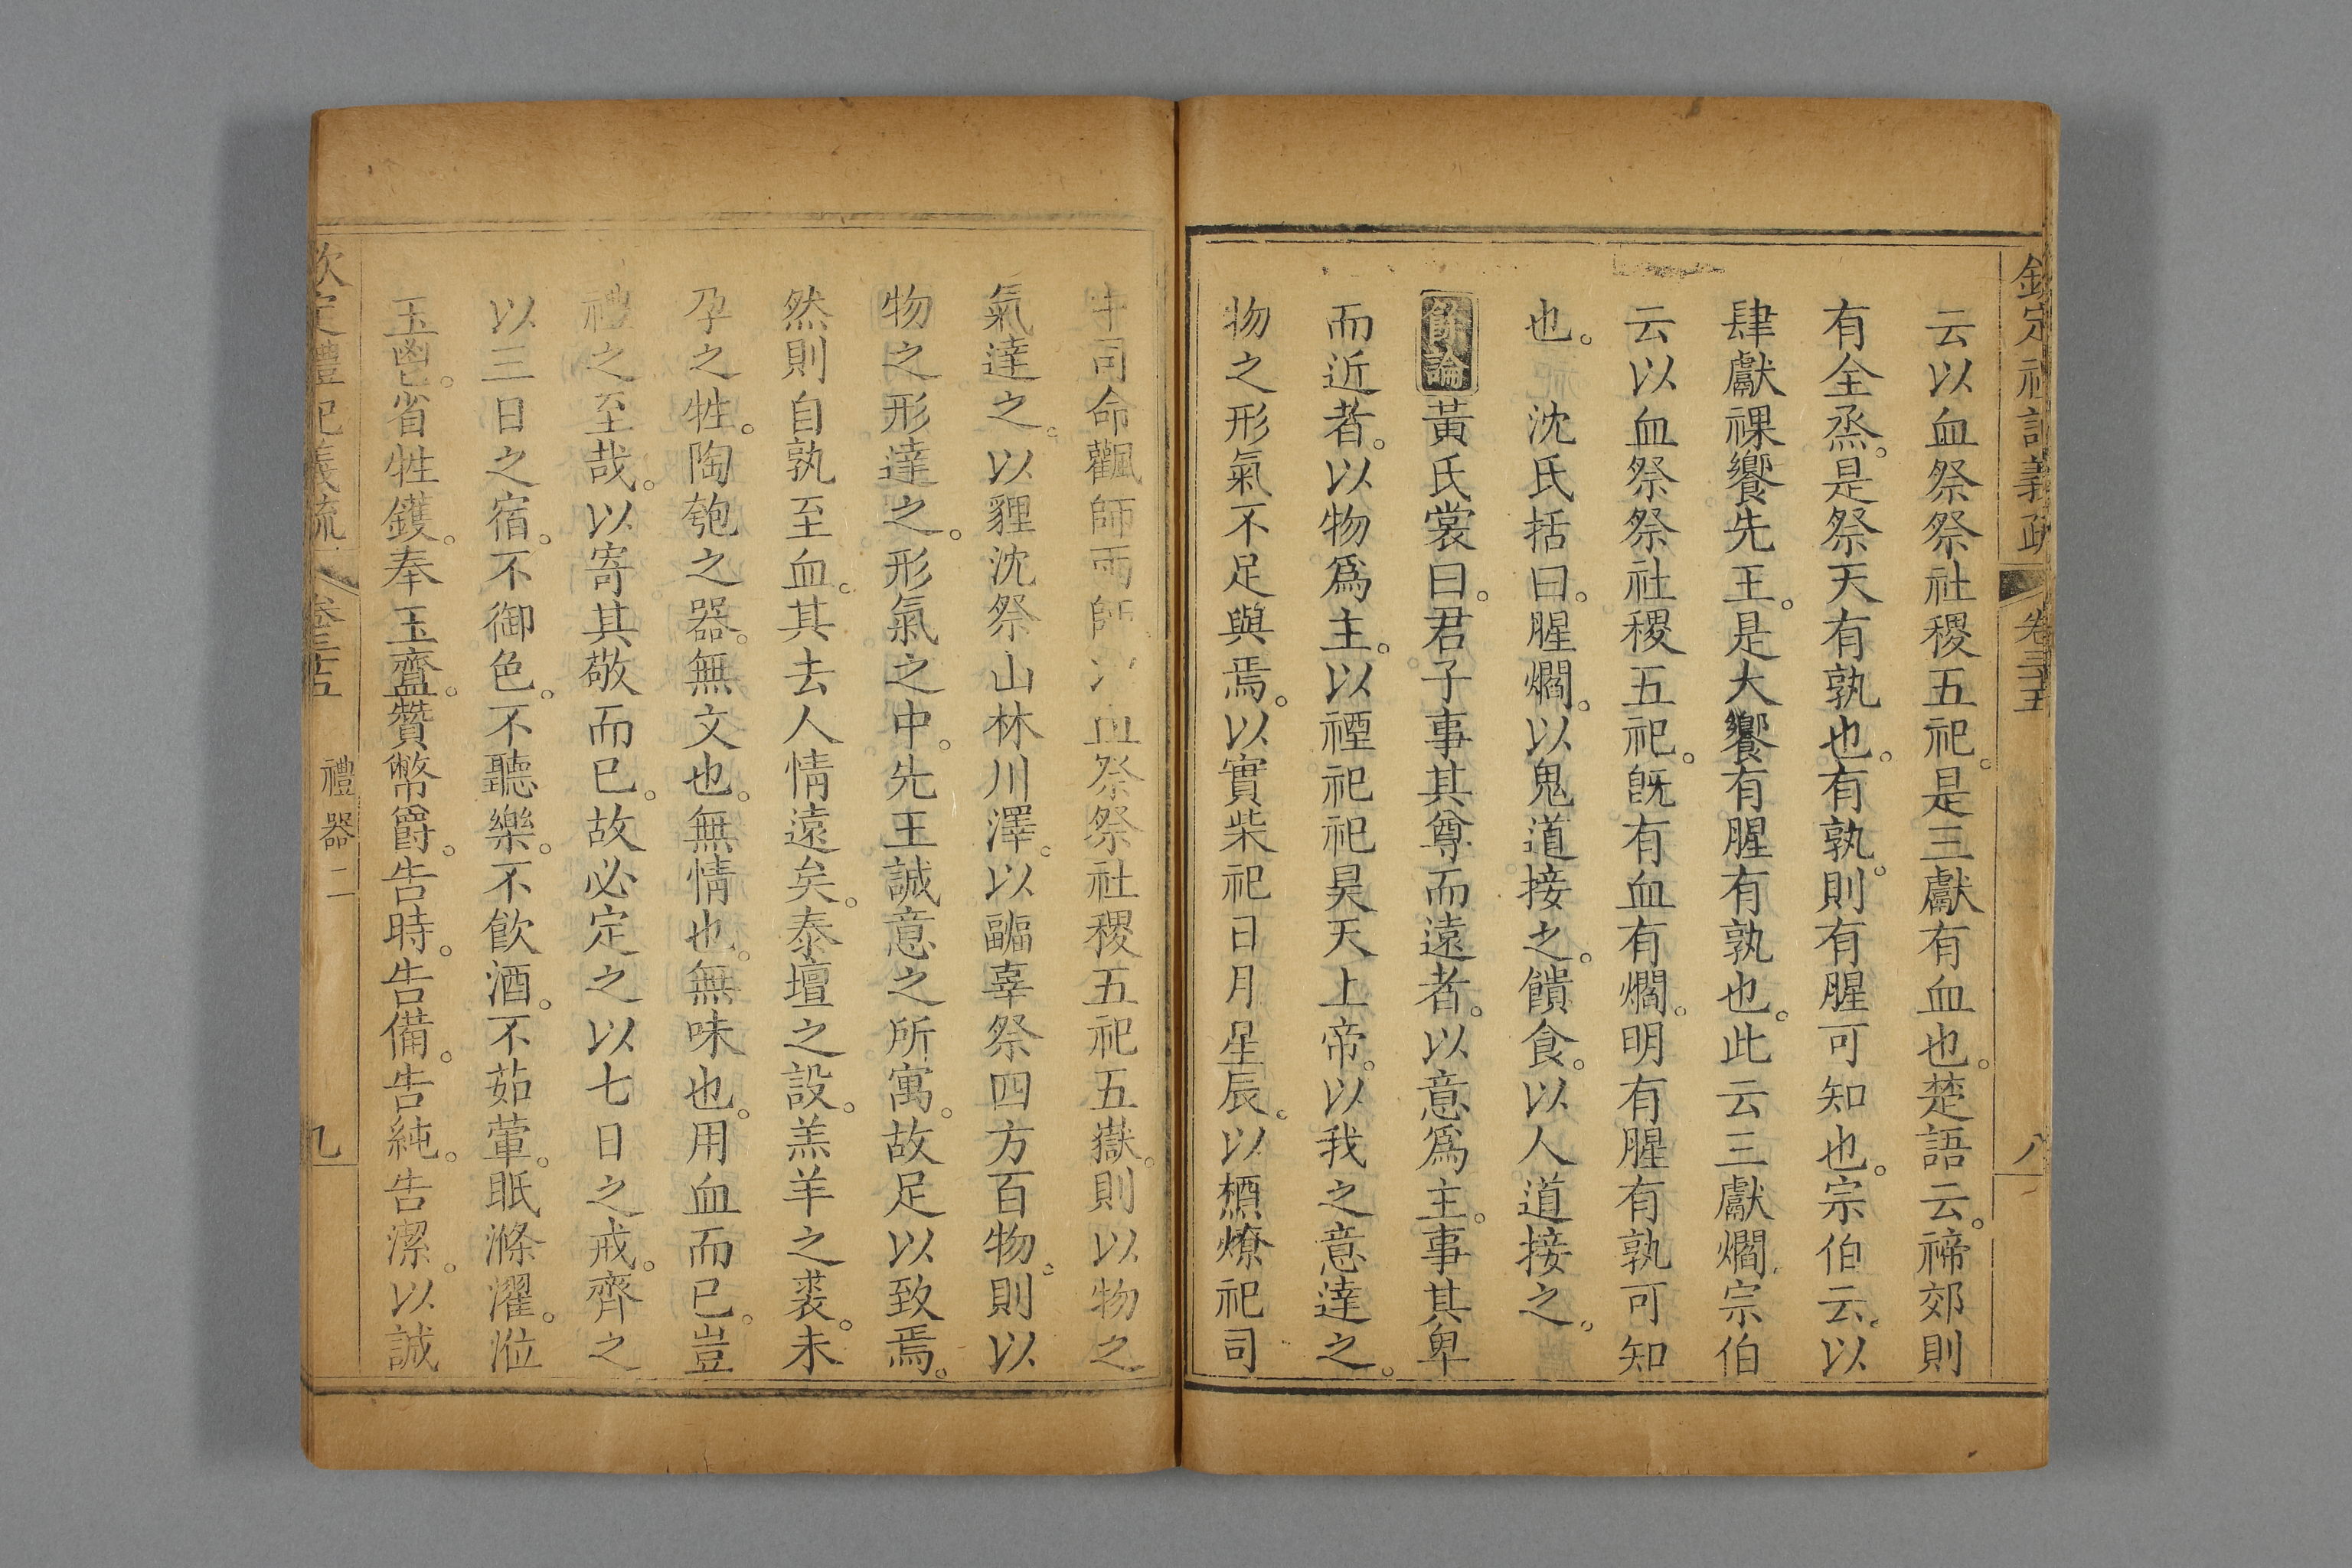 欽定禮記義疏 卷三十五 八
云以血祭祭社稷五祀。是三獻有血也。楚語云。禘郊則
有全烝。是祭天有孰也。有孰。則有腥可知也。宗伯云。以
肆獻祼饗先王。是大饗有腥有孰也。此云三獻爓。宗伯
云以血祭祭社稷五祀。旣有血有爓。明有腥有孰可知
也。沈氏括曰。腥爓。以鬼道接之。饋食。以人道接之。
餘論黃氏裳曰。君子事其尊而遠者。以意爲主。事其卑
而近者。以物爲主。以禋祀祀昊天上帝。以我之意達之。
物之形氣不足與焉。以實柴祀日月星辰。以槱燎祀司
中司命飌師雨師。以血祭祭社稷五祀五嶽。則以物之
氣達之。以貍沈祭山林川澤。以疈辜祭四方百物。則以
物之形達之。形氣之中。先王誠意之所寓。故足以致焉。
然則自孰至血。其去人情遠矣。泰壇之設。羔羊之裘。未
孕之牲。陶匏之器。無文也。無情也。無味也。用血而已。豈
禮之至哉。以寄其敬而已。故必定之以七日之戒。齊之
以三日之宿。不御色。不聽樂。不飮酒。不茹葷。眂滌濯。涖
玉鬯。省牲鑊。奉玉齍。贊幣爵。告時。告備。告純。告潔。以誠
欽定禮記義疏 卷三十五 禮器二 九